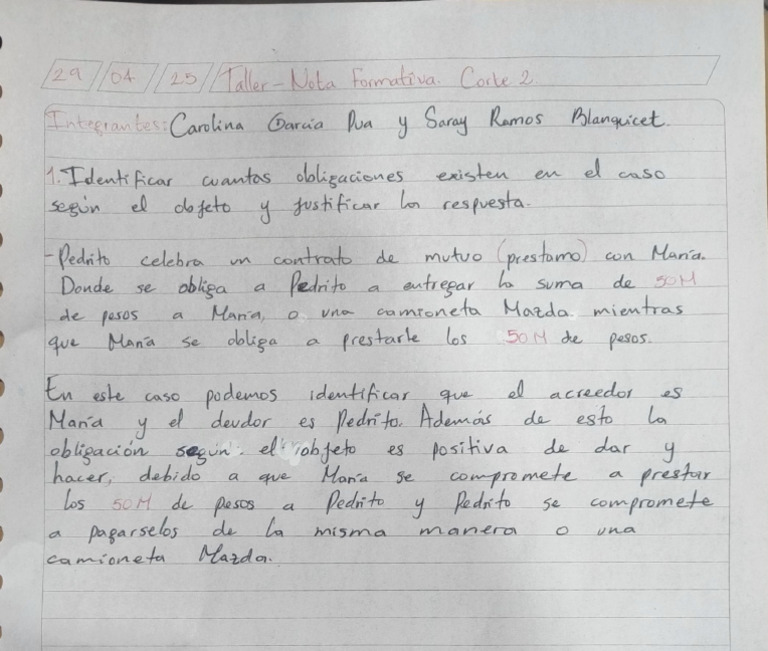 29 / 04 / 25 / Taller - Nota Formativa. Corte 2.
Integrantes: Carolina Garcia Pua y Saray Ramos Blanquicet.
1. Identificar cuantas obligaciones existen en el caso
según el objeto y justificar la respuesta.
- Pedrito celebra un contrato de mutuo (prestamo) con María.
Donde se obliga a Pedrito a entregar la suma de 50M
de pesos a María, o una camioneta Mazda. mientras
que María se obliga a prestarle los 50M de pesos.
En este caso podemos identificar que el acreedor es
María y el deudor es Pedrito. Además de esto la
obligación según el objeto es positiva de dar y
hacer, debido a que María se compromete a prestar
los 50M de pesos a Pedrito y Pedrito se compromete
a pagarselos de la misma manera o una
camioneta Mazda.